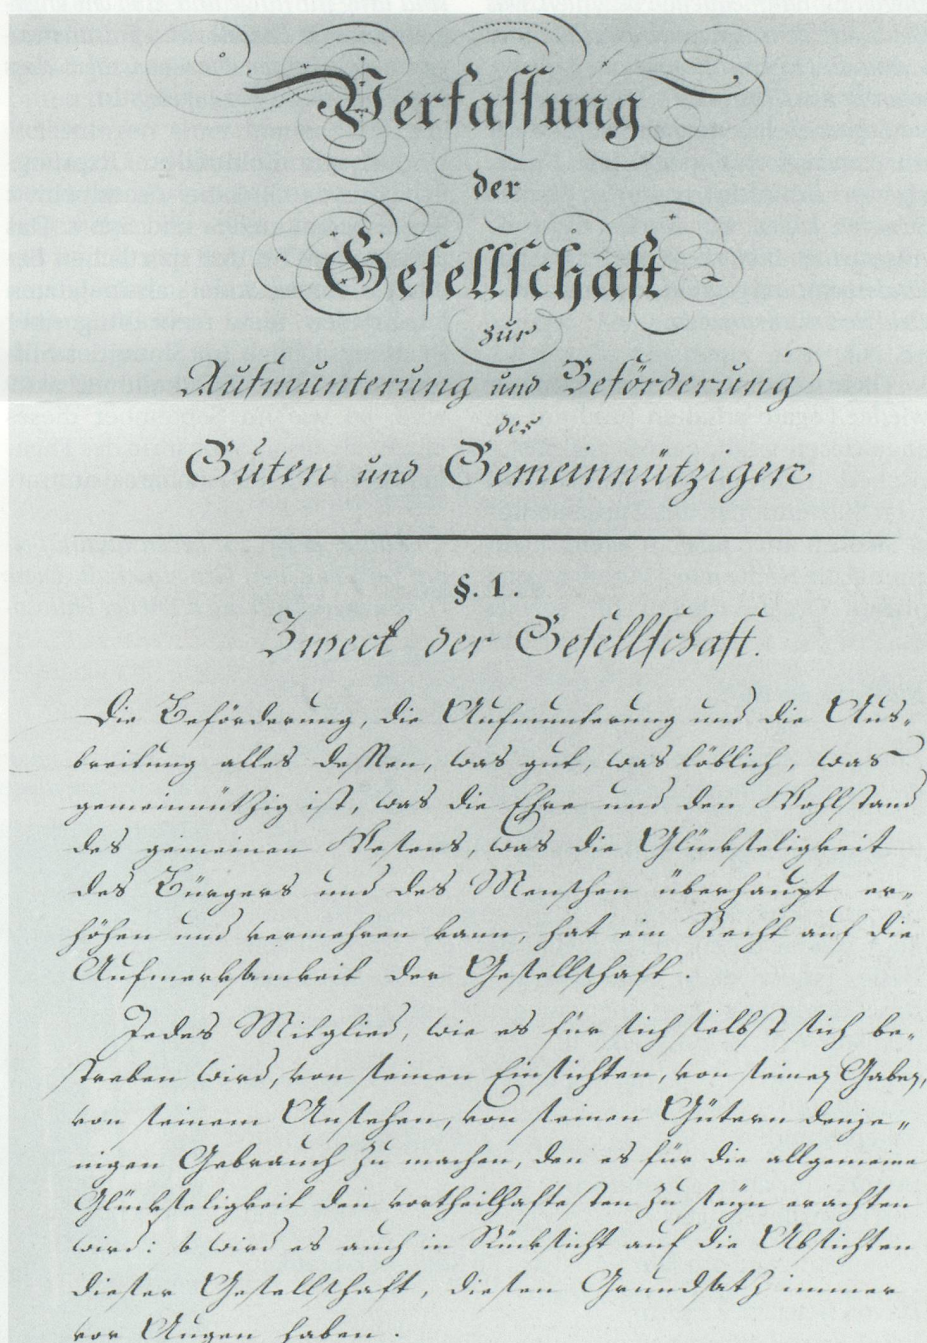 Verfassung
der
Gesellschaft
zur
Aufmunterung und Beförderung
des
Guten und Gemeinnützigen
§. 1.
Zweck der Gesellschaft.
Die Beförderung, die Aufmunterung und die Aus„
breitung alles dessen, was gut, was löblich, was
gemeinnützig ist, was die Ehre und den Wohlstand
des gemeinen Wesens, was die Glückseligkeit
des Bürgers und des Menschen überhaupt er„
höhen und vermehren kann, hat ein Recht auf die
Aufmerksamkeit der Gesellschaft.
Jedes Mitglied, wie es für sich selbst sich be„
streben wird, von seinen Einsichten, von seinen Gaben,
von seinem Ansehen, von seinen Gütern denje„
nigen Gebrauch zu machen, den es für die allgemeine
Glückseligkeit den vortheilhaftesten zu seyn erachten
wird: so wird es auch in Rücksicht auf die Absichten
dieser Gesellschaft, diesen Grundsatz immer
vor Augen haben.